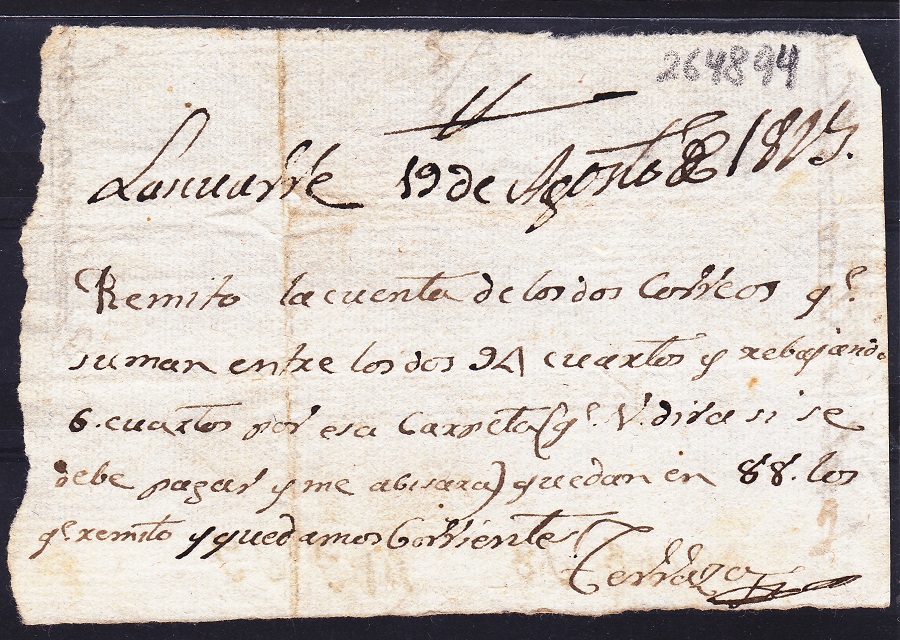 264894
Lascuarre 19 de Agosto de 1823.
Remito la cuenta de los dos Correos q.e
suman entre los dos 94 cuartos y rebajando
6. cuartos por esa Carpeta (q.e V. dira si se
debe pagar y me abisara) quedan en 88. los
q.e remito y quedamos Corriente
Terraza